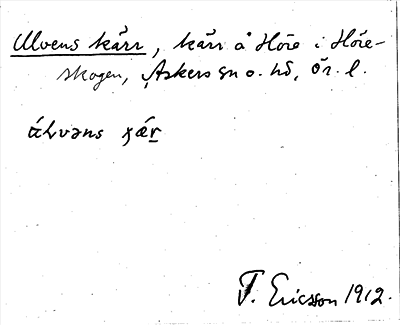 Ulvens kärr, kärr å Höre i Höre-
skogen, Askers sn o. hd, Ör. l.
úlvəns ꞔǽr
T. Ericsson 1912.